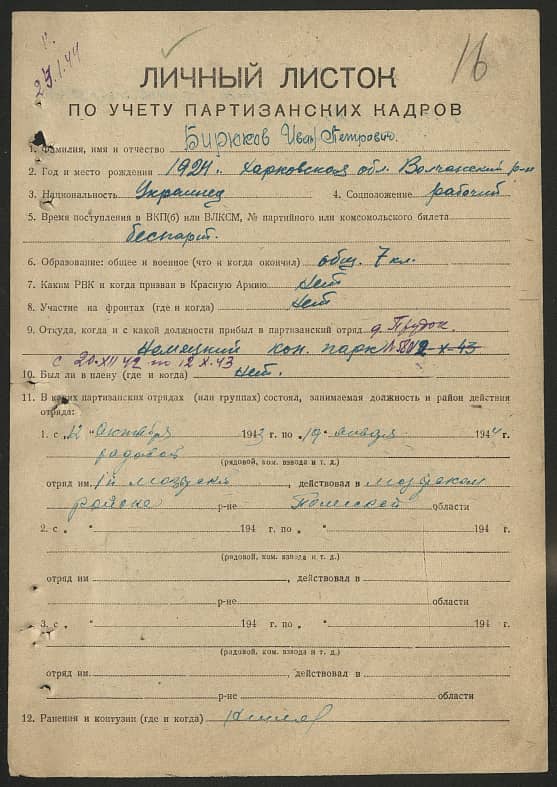 23.1.44
16
ЛИЧНЫЙ ЛИСТОК
ПО УЧЕТУ ПАРТИЗАНСКИХ КАДРОВ
1. Фамилия, имя и отчество Бирюков Иван Петрович.
2. Год и место рождения 1924 г. Харьковская обл. Волчанский р-н
3. Национальность Украинец 4. Соцположение рабочий
5. Время поступления в ВКП(б) или ВЛКСМ, № партийного или комсомольского билета
беспарт.
6. Образование: общее и военное (что и когда окончил) общ. 7 кл.
7. Каким РВК и когда призван в Красную Армию Нет
8. Участие на фронтах (где и когда) Нет
9. Откуда, когда и с какой должности прибыл в партизанский отряд д. Прудок.
Немецкий кон. парк 2 X-43
с 20-XII 42 по 12 X.43
10. Был ли в плену (где и когда) нет.
11. В каких партизанских отрядах (или группах) состоял, занимаемая должность и район действия
отряда:
1. с „12 " Октября 1943 г. по „19 " января 1944 г.
рядовой
(рядовой, ком. взвода и т. д.)
отряд им. 1й Мозырский, действовал в Мозырском
районе р-не Полесской области
2. с „ " 194 г. по „ " 194 г.
(рядовой, ком. взвода и т. д.)
отряд им. , действовал в
р-не области
3. с „ " 194 г. по „ " 194 г.
(рядовой, ком. взвода и т. д.)
отряд им. , действовал в
р-не области
12. Ранения и контузии (где и когда)